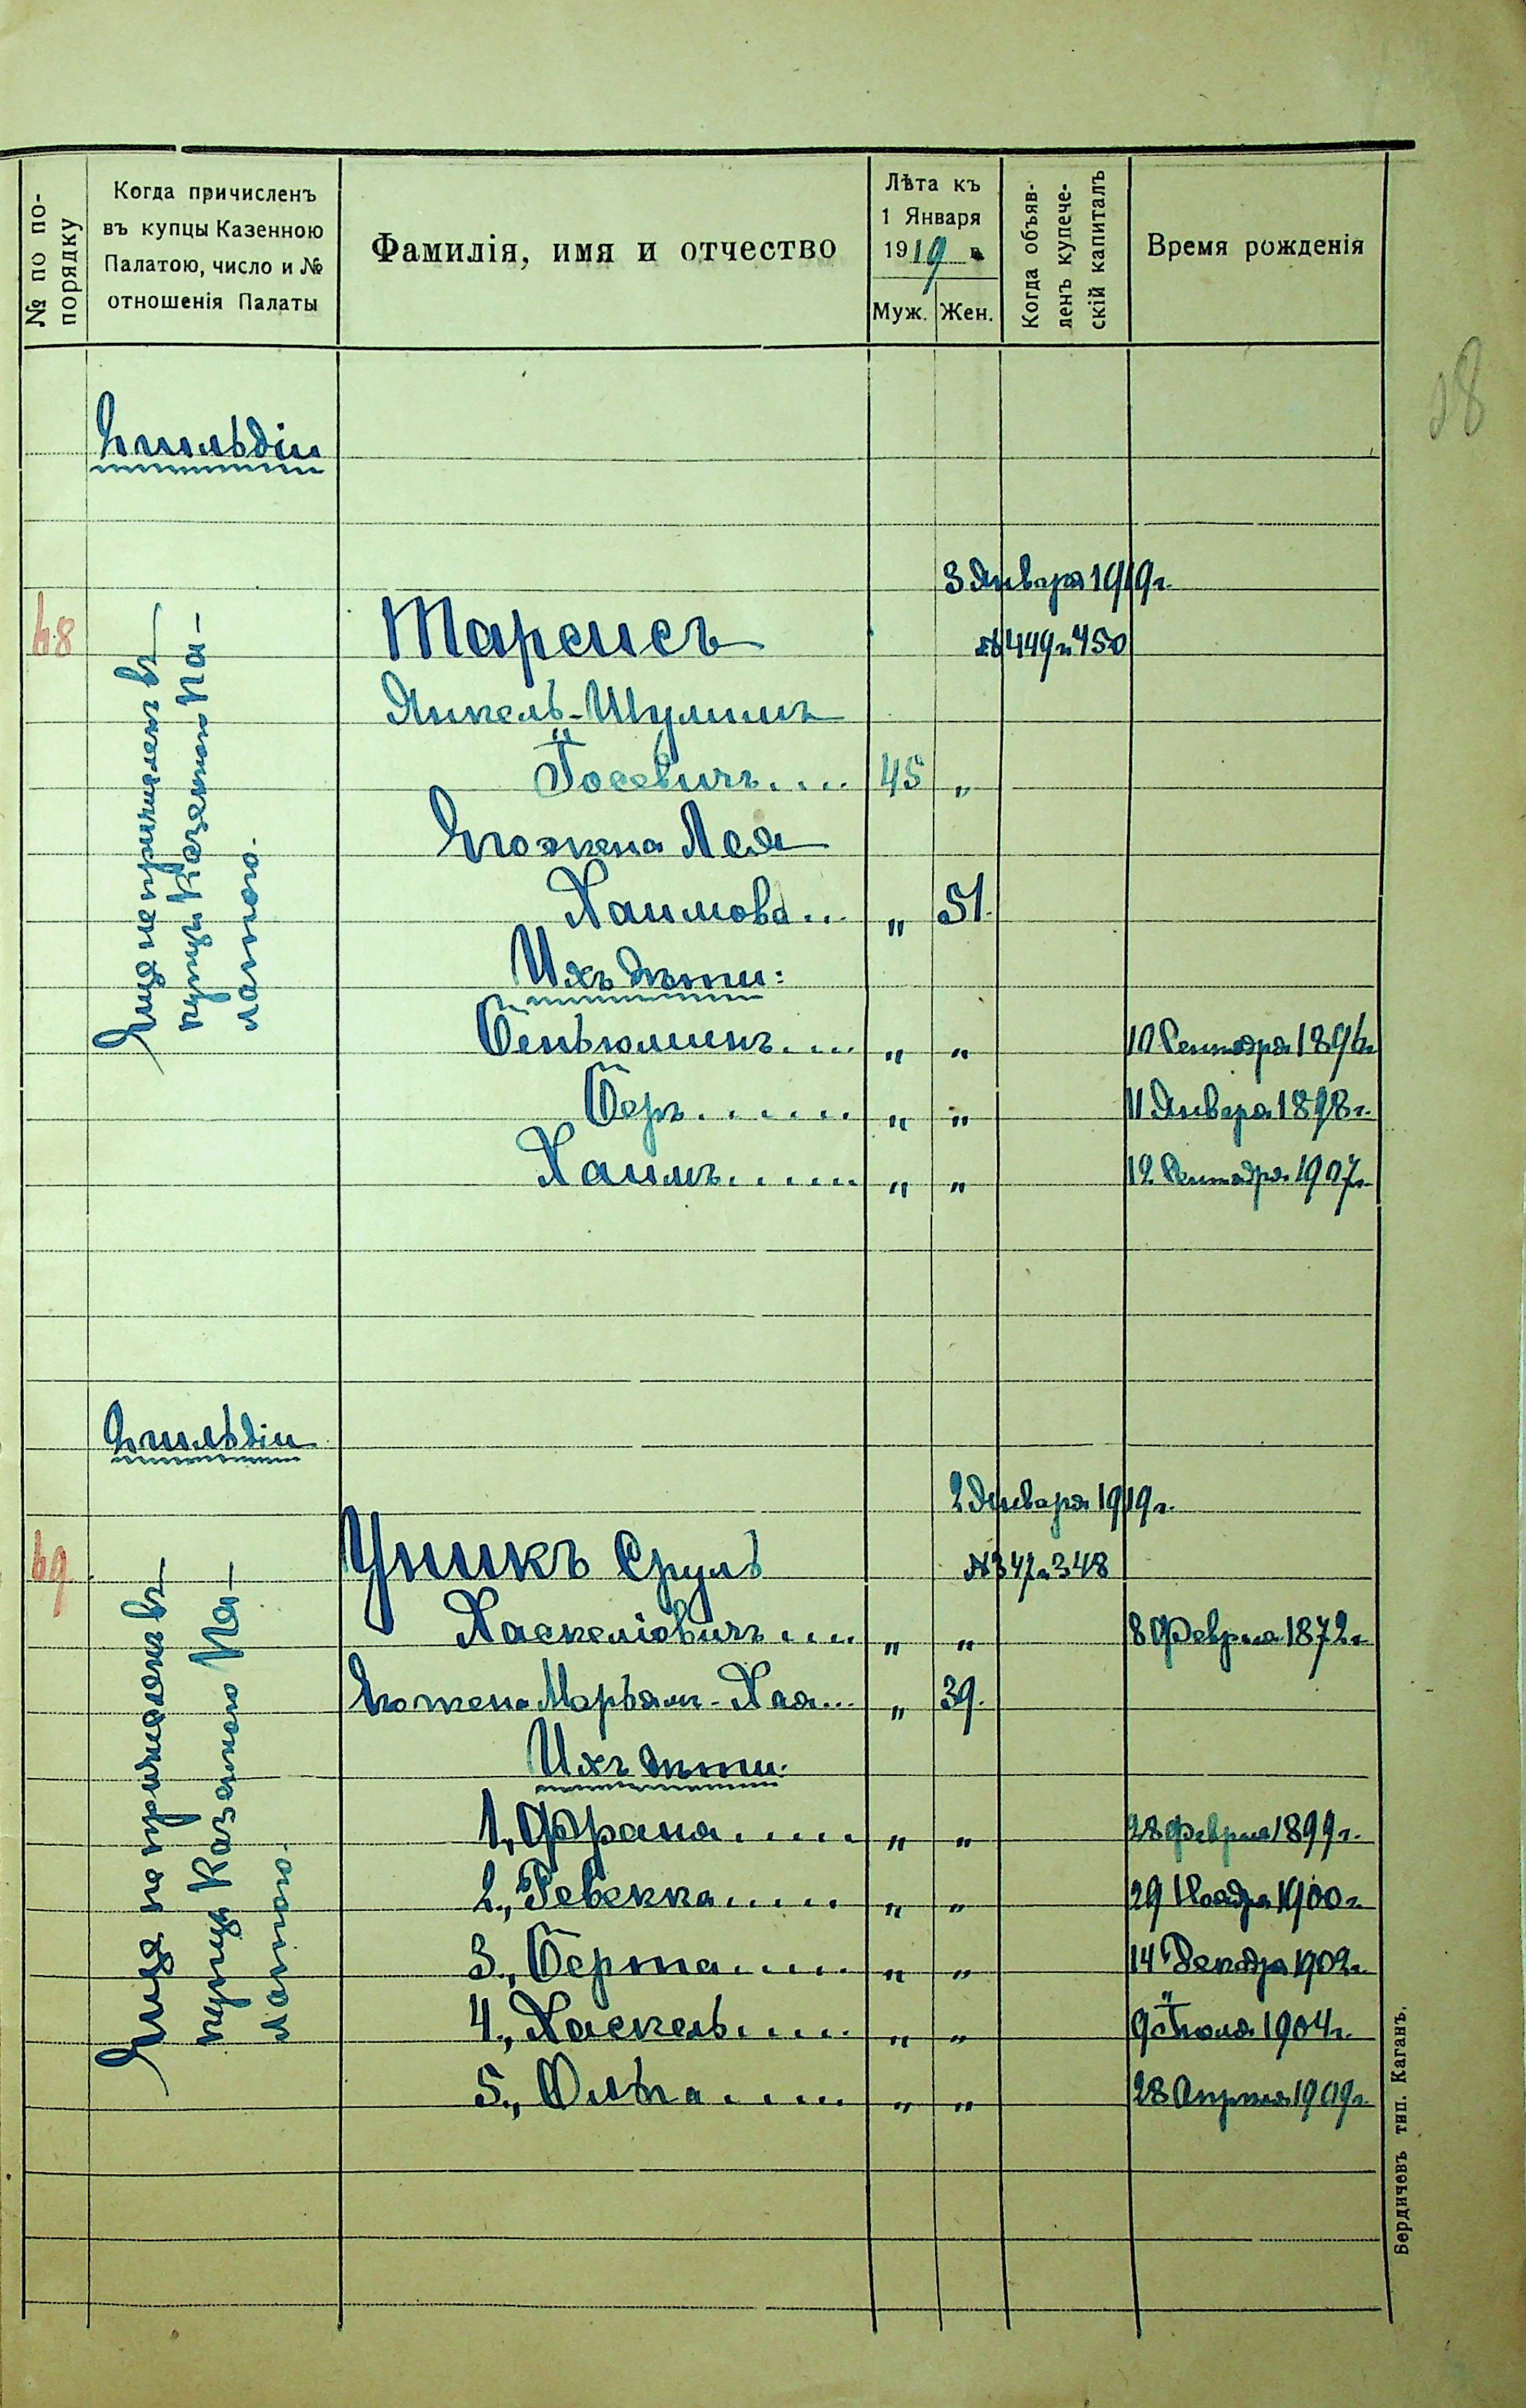 № по по-
порядку
Когда причисленъ
въ купцы Казенною
Палатою, число и №
отношенія Палаты
Фамилія, имя и отчество
Лѣта къ
1 Января
1919 г.
Муж.
Жен.
Когда объяв-
ленъ купече-
скій капиталъ
Время рожденія
28
2 гильдіи
3 Января 1919 г.
68
Тарсисъ
№ 449 и 450
Янкель-Шулимъ
Іосевичъ.... 45 "
Его жена Лея
Хаимова... " 51.
Ихъ дѣти:
Беньюминъ.... " " 10 Сентября 1896 г.
Беръ...... " " 11 Января 1898 г.
Хаимъ...... " " 12 Сентября 1907 г.
Еще не причисленъ въ
купцы Казенною Па-
латою.
2 гильдіи
2 Января 1919 г.
69
Уникъ Сруль
№ 347 и 348
Хаскеліовичъ.... " " 8 Февраля 1872 г.
Его жена Марьям-Хая... " 39.
Ихъ дѣти:
1., Франа..... " " 28 Февраля 1899 г.
2., Ревекка..... " " 29 Ноября 1900 г.
3., Берта..... " " 14 Декабря 1902 г.
4., Хаскель..... " " 9 Іюля 1904 г.
5., Ольга..... " " 28 Апреля 1909 г.
Еще не причисленъ въ
купцы Казенною Па-
латою.
Бердичевъ тип. Каганъ.